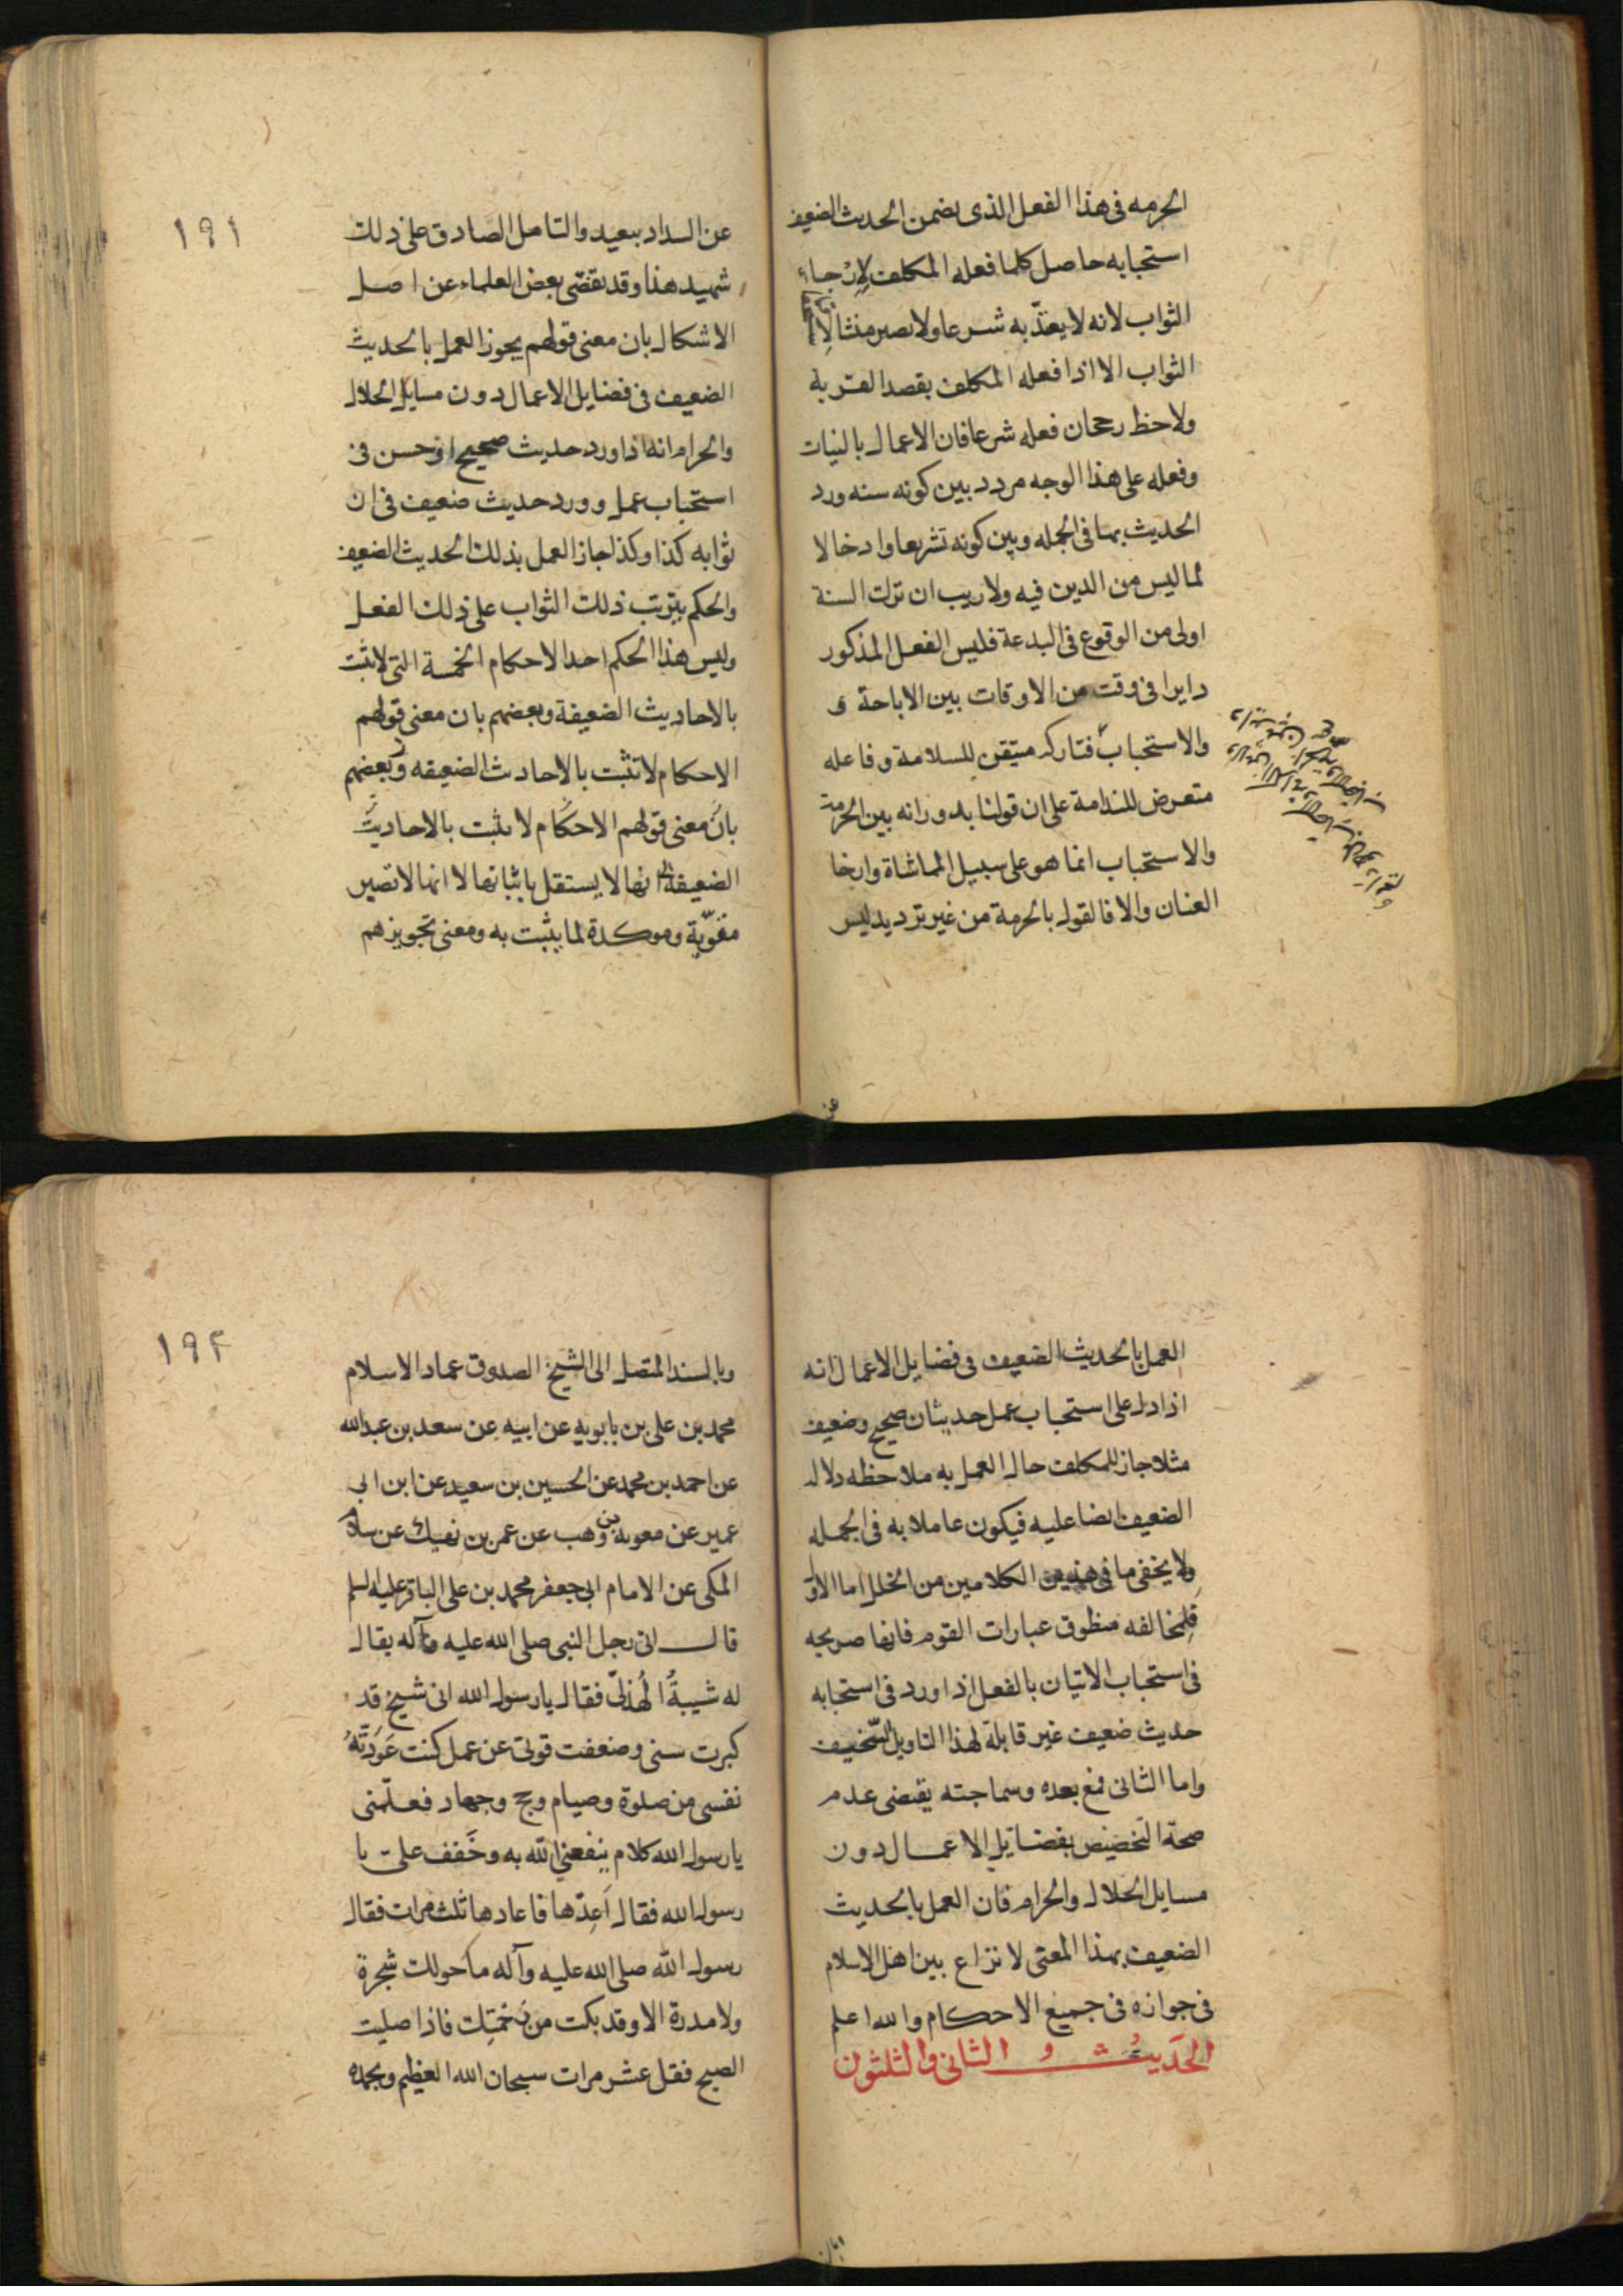 الحرمه فى هذا الفعل الذى تضمن الحديث الضعيف
استحبابه حاصل كلما فعله المكلف لرجاء
الثواب لانه لا يعتدّ به شرعا ولا يصير منشا لا
الثواب الا اذا فعله المكلف بقصد القربة
ولاحظ رجحان فعله شرعا فان الاعمال بالنيات
وفعله على هذا الوجه مردد بين كونه سنه ورد
الحديث بها فى الجمله وبين كونه تشريعا وادخالا
لما ليس من الدين فيه ولا ريب ان ترك السنة
اولى من الوقوع فى البدعة فليس الفعل المذكور
دايرا فى وقت من الاوقات بين الاباحة و
والاستحباب فتاركه متيقن للسلامة وفاعله
متعرض للندامة على ان قولنا بدورانه بين الحرمة
والاستحباب انما هو على سبيل المماشاة وارخا
العنان والا فالقول بالحرمة من غير ترديد ليس
عن
١٩١
عن السداد ببعيد والتامل الصادق على ذلك
شهيد هذا وقد تفصّى بعض العلماء عن اصل
الاشكال بان معنى قولهم يجوز العمل بالحديث
الضعيف فى فضايل الاعمال دون مسايل الحلال
والحرام انه اذا ورد حديث صحيح او حسن فى
استحباب عمل وورد حديث ضعيف فى ان
ثوابه كذا وكذا جاز العمل بذلك الحديث الضعيف
والحكم بترتب ذلك الثواب على ذلك الفعل
وليس هذا الحكم احد الاحكام الخمسة التى لا تثبت
بالاحاديث الضعيفة وبعضهم بان معنى قولهم
الاحكام لا تثبت بالاحاديث الضعيفه وبعضهم
بان معنى قولهم الاحكام لا تثبت بالاحاديث
الضعيفة انها لا يستقل باثباتها لا انها لا تصير
مقوّية وموكدة لما يثبت به ومعنى تجويزهم
العمل بالحديث الضعيف فى فضايل الاعمال انه
اذا دل على استحباب عمل حديثان صحيح وضعيف
مثلا جاز للمكلف حال العمل به ملاحظه دلاله
الضعيف ايضا عليه فيكون عاملا به فى الجمله
ولا يخفى ما فى هذين الكلامين من الخلل اما الاول
فلمخالفه منطوق عبارات القوم فانها صريحه
فى استحباب الاتيان بالفعل اذا ورد فى استحبابه
حديث ضعيف غير قابلة لهذا التاويل السخيف
واما الثانى فمع بعده وسماجته يقتضى عدم
صحة التخصيص بفضايل الاعمال دون
مسايل الحلال والحرام فان العمل بالحديث
الضعيف بهذا المعنى لا نزاع بين اهل الاسلام
فى جوازه فى جميع الاحكام والله اعلم
الحديث الثانى والثلثون
١٩٢
وبالسند المتصل الى الشيخ الصدوق عماد الاسلام
محمد بن على بن بابويه عن ابيه عن سعد بن عبدالله
عن احمد بن محمد عن الحسين بن سعيد عن ابن ابى
عمير عن معويه بن وهب عن عمر بن نهيك عن سلام
المكى عن الامام ابى جعفر محمد بن على الباقر عليه السلم
قال اتى رجل النبى صلى الله عليه وآله يقال
له شيبةُ الهُذلىّ فقال يا رسول الله انى شيخ قد
كبرت سنى وضعفت قوتى عن عمل كنت عَوَّدتُهُ
نفسى من صلوة وصيام وحج وجهاد فعلّمنى
يا رسول الله كلام ينفعنى الله به وخَفف على يا
رسول الله فقال اَعِدها فاعادها ثلث مرات فقال
رسول الله صلى الله عليه وآله ما حولك شجرة
ولا مدرة الا وقد بكت من رحمتك فاذا صليت
الصبح فقل عشر مرات سبحان الله العظيم وبحمده